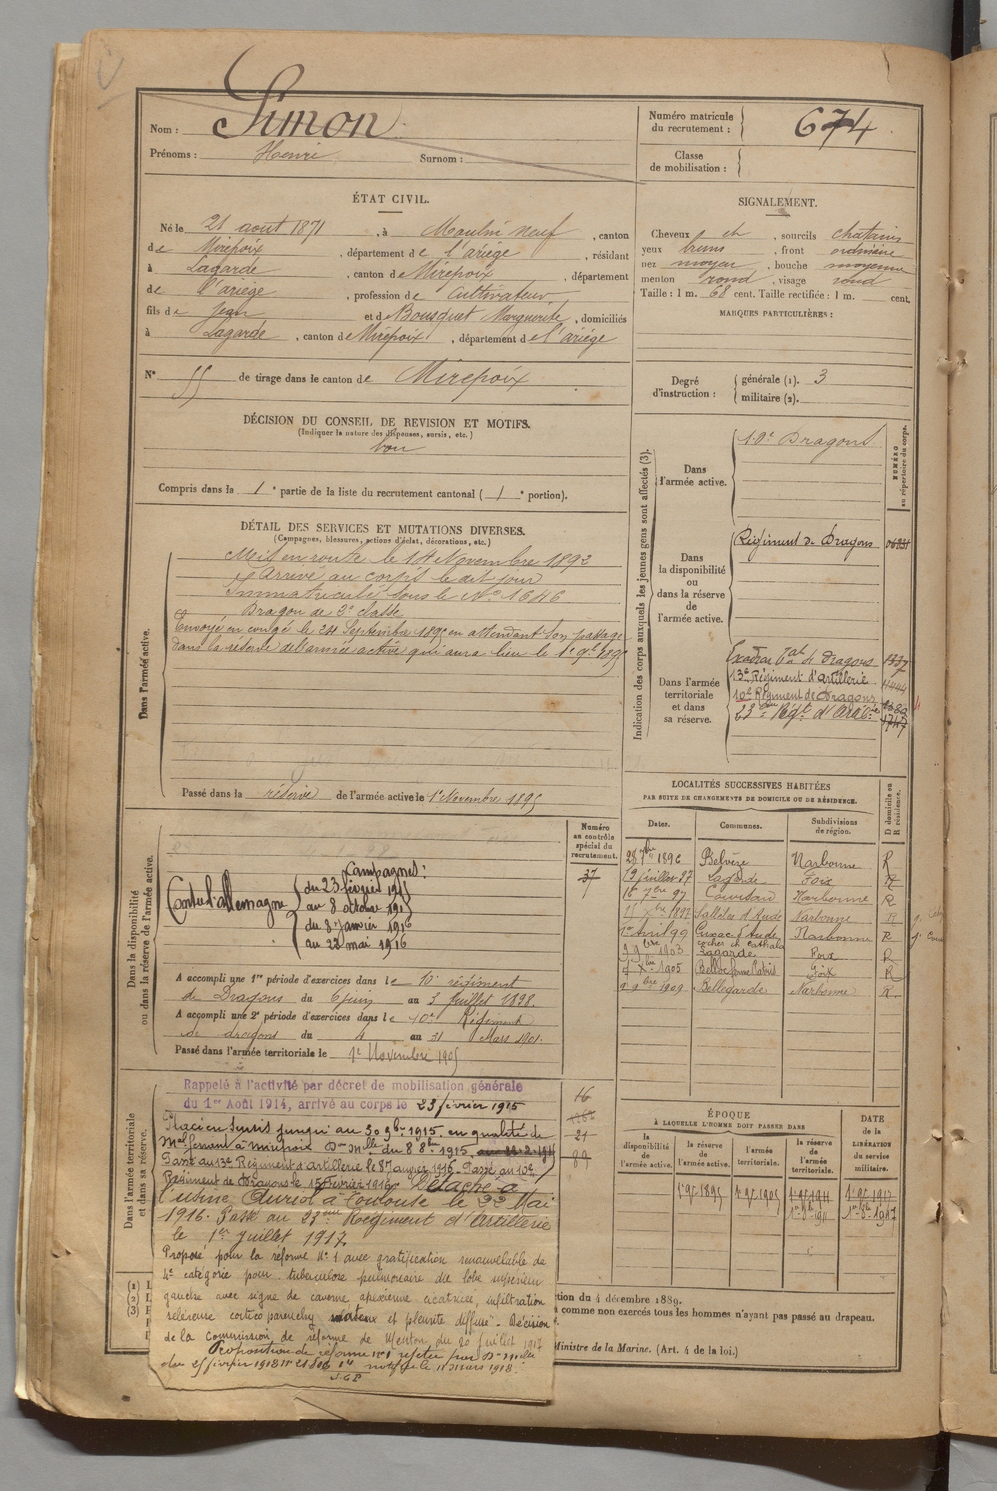 Nom : Simon
Prénoms : Henri Surnom :
Numéro matricule du recrutement : 674
Classe de mobilisation :
ÉTAT CIVIL.
Né le 21 août 1871, à Moulin neuf, canton
de Mirepoix, département de l'ariége, résidant
à Lagarde, canton de Mirepoix, département
de l'ariége, profession de Cultivateur
fils de Jean et de Bousquet Marguerite, domiciliés
à Lagarde, canton de Mirepoix, département de l'ariége
N° 55 de tirage dans le canton de Mirepoix
SIGNALEMENT.
Cheveux ch, sourcils chatains
yeux bruns, front ordinaire
nez moyen, bouche moyenne
menton rond, visage rond
Taille : 1 m. 68 cent. Taille rectifiée : 1 m. cent.
MARQUES PARTICULIÈRES :
Degré d'instruction : générale (1). 3
militaire (2).
DÉCISION DU CONSEIL DE REVISION ET MOTIFS.
(Indiquer la nature des dispenses, sursis, etc.)
bon
Compris dans la 1e partie de la liste du recrutement cantonal (1e portion).
DÉTAIL DES SERVICES ET MUTATIONS DIVERSES.
(Campagnes, blessures, actions d'éclat, décorations, etc.)
Dans l'armée active.
Mis en route le 14 Novembre 1892
Arrivé au corps le dit jour
Immatriculé sous le N° 1646
Dragon de 2e classe
Envoyé en congé le 24 Septembre 1895 en attendant son passage
dans la réserve de l'armée active qui aura lieu le 1er 9bre 1895
Passé dans la réserve de l'armée active le 1er Novembre 1895
Indication des corps auxquels les jeunes gens sont affectés (3).
NUMÉRO au répertoire du corps.
Dans l'armée active.
10e Dragons
Dans la disponibilité ou dans la réserve de l'armée active.
Régiment de Dragons
Dans l'armée territoriale et dans sa réserve.
Dragons 1337
13e Régiment d'artillerie 1444
10e Régiment de Dragons
23ème Régt d'Artie 1747
LOCALITÉS SUCCESSIVES HABITÉES
PAR SUITE DE CHANGEMENTS DE DOMICILE OU DE RÉSIDENCE.
Dates. Communes. Subdivisions de région. D domicile ou R résidence.
28 7bre 1896 Belvèze Narbonne R
19 juillet 97 Lagarde Foix R
16 7bre 97 Coursan Narbonne R
1897 Salleles d'Aude Narbonne R
1er Avril 99 Cuxac d'Aude Narbonne R
1903 Lagarde Foix R
1905 Belloc Foix R
1909 Bellegarde Narbonne R
Numéro au contrôle spécial du recrutement.
37
Dans la disponibilité ou dans la réserve de l'armée active.
Campagnes :
Contre l'allemagne
du 23 février 1915
au 8 octobre 1915
du 8 janvier 1916
au 22 mai 1916
A accompli une 1re période d'exercices dans le 10e régiment
de Dragons du 6 juin au 3 juillet 1898.
A accompli une 2e période d'exercices dans le 10e Régiment
de dragons du 4 au 31 Mars 1901.
Passé dans l'armée territoriale le 1er Novembre 1905
Dans l'armée territoriale et dans sa réserve.
Rappelé à l'activité par décret de mobilisation générale
du 1er Août 1914, arrivé au corps le 23 février 1915
Placé en sursis jusqu'au 30 9bre 1915 en qualité de
Mal ferrant à Mirepoix Don Mlle du 8 8bre 1915
Passé au 13e Régiment d'artillerie le 8 janvier 1916. Passé au 10e
Régiment de Dragons le 15 Février 1916. Détaché à
l'usine Auriol à Toulouse le 22 Mai
1916. Passé au 23ème Régiment d'Artillerie
le 1er juillet 1917
Proposé pour la réforme N° 1 avec gratification renouvelable de
4e catégorie pour tuberculose pulmonaire du lobe supérieur
gauche avec signe de caverne apexienne cicatricée, infiltration
scléreuse cortico et pleurite diffuse". Décision
de la commission de réforme de Menton du 20 juillet 1917
Proposition de réforme n° 1 rejetée par Don mlle
du 25 février 1918 notifiée le 11 mars 1918.
16
21
89
ÉPOQUE
À LAQUELLE L'HOMME DOIT PASSER DANS
la disponibilité de l'armée active. la réserve de l'armée active. l'armée territoriale. la réserve de l'armée territoriale.
DATE de la LIBÉRATION du service militaire.
1er 9bre 1895 1er 9bre 1905 1er 9bre 1911 1er 9bre 1917
(1)
(2)
(3)
tion du 4 décembre 1889.
comme non exercés tous les hommes n'ayant pas passé au drapeau.
Ministre de la Marine. (Art. 4 de la loi.)